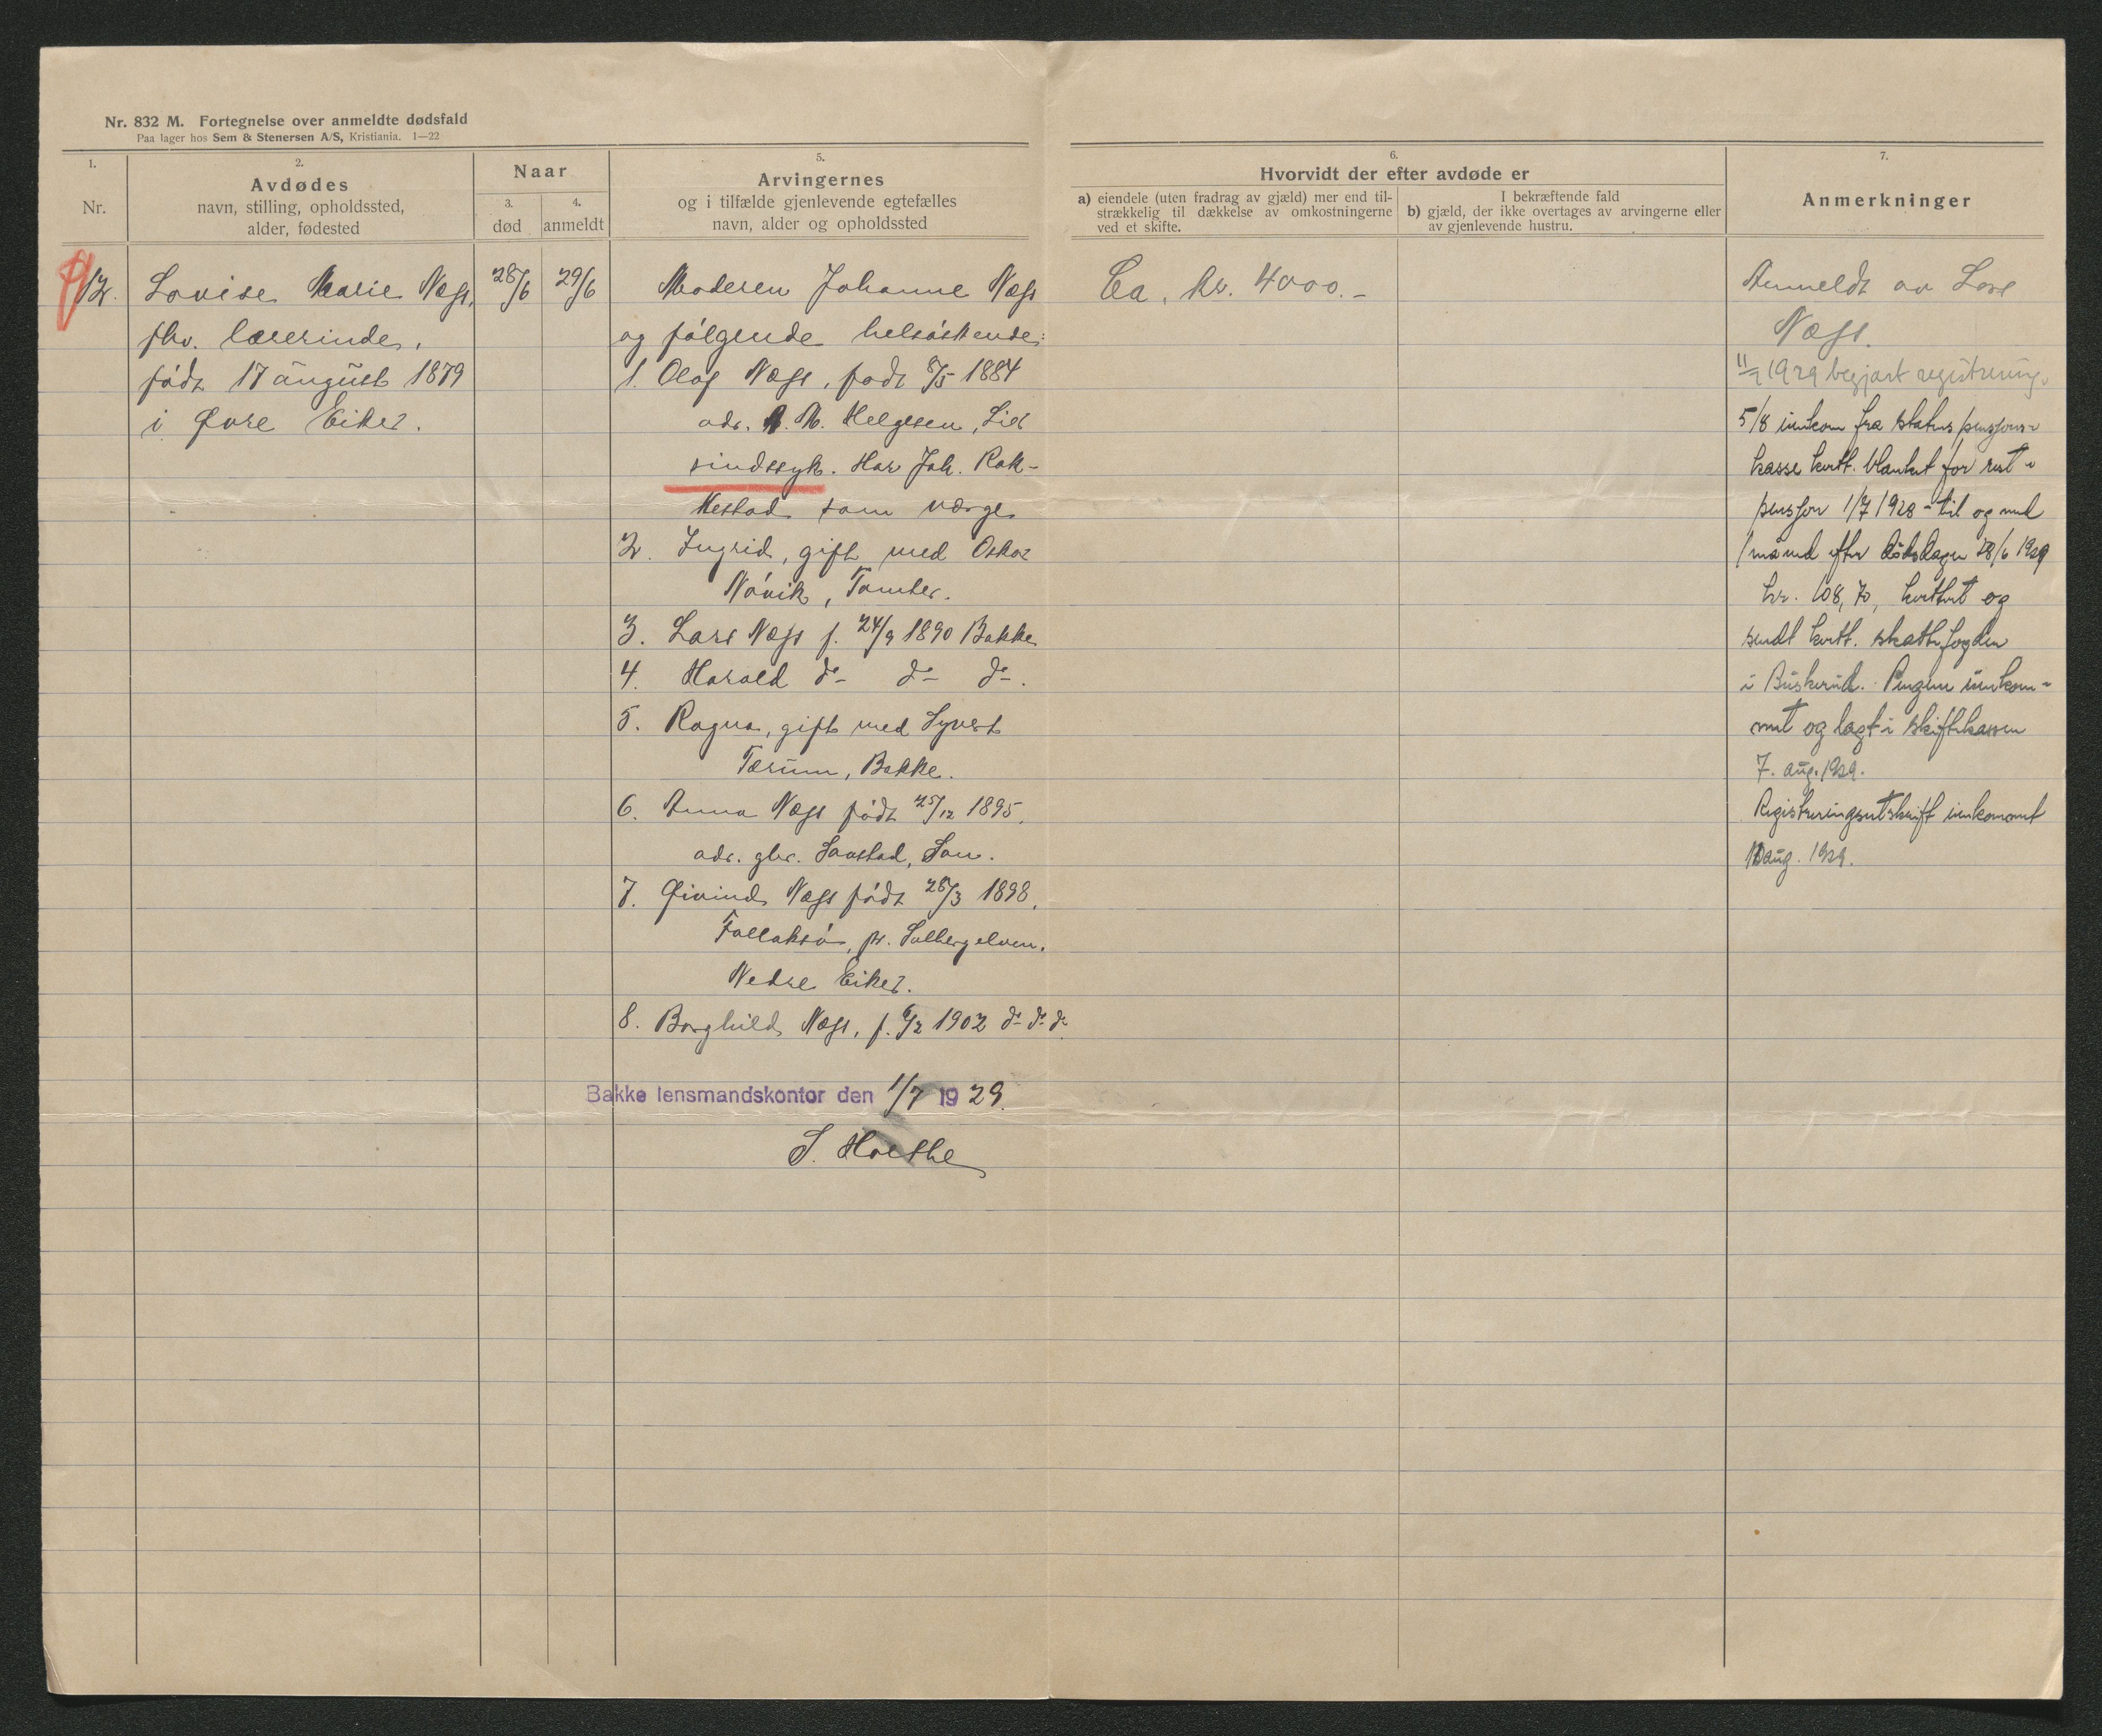 Nr. 832 M. Fortegnelse over anmeldte dødsfald
Paa lager hos Sem & Stenersen A/S, Kristiania. 1—22
1.
Nr.
2.
Avdødes
navn, stilling, opholdssted,
alder, fødested
Naar
3.
død
4.
anmeldt
5.
Arvingernes
og i tilfælde gjenlevende egtefælles
navn, alder og opholdssted
6.
Hvorvidt der efter avdøde er
a) eiendele (uten fradrag av gjæld) mer end til-
strækkelig til dækkelse av omkostningerne
ved et skifte.
I bekræftende fald
b) gjæld, der ikke overtages av arvingerne eller
av gjenlevende hustru.
7.
Anmerkninger
12.
Lovise Marie Næss,
fhv. lærerinde,
født 17 august 1879
i Øvre Eiker.
28/6
29/6
Moderen Johanne Næss
og følgende helsøskende:
1. Olaf Næss, født 8/5 1884
adr. M. Helgesen, Lier
sindssyk. Har Joh. Rak-
kestad som værge
2. Ingrid, gift med Oskar
Nøvik, Tomter.
3. Lars Næss f. 24/9 1890 Bakke
4. Harald do do do.
5. Ragna, gift med Syvert
Tærum, Bakke.
6. Anna Næss født 25/12 1895,
adr. gbr. Saustad, Son.
7. Øivind Næss født 28/3 1898,
Fallaksø, pr. Solbergelven.
Nedre Eiker.
8. Borghild Næss, f. 6/2 1902 do do do.
Bakke lensmandskontor den 1/7 1929.
S. Hoethe
Ca. kr. 4000.-
Anmeldt av Lars
Næss.
11/7 1929 begjært registrering.
5/8 innkom fra statens pensjons-
kasse kvitt. blankett for rest-
pensjon 1/7 1928 - til og med
1 måned efter dødsdagen 28/6 1929
kr. 108,70, kvittert og
sendt kvitt. skattefogden
i Buskerud. Pengene innkom-
met og lagt i skiftekassen
7. aug. 1929.
Registreringsutskrift innkommet
aug. 1929.